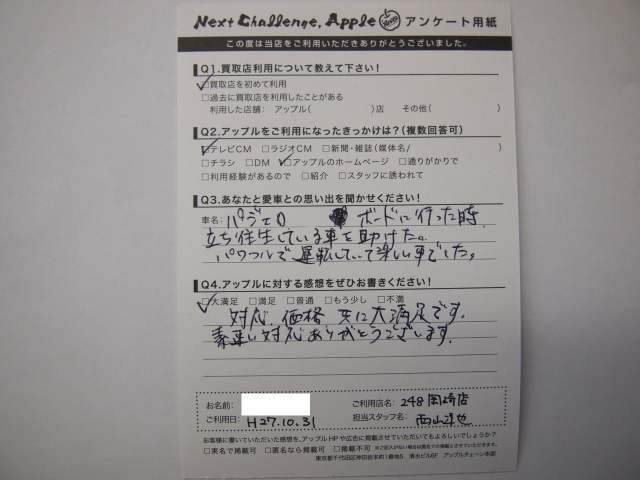 Next Challenge. Apple アンケート用紙
この度は当店をご利用いただきありがとうございました。
Q1.買取店利用について教えて下さい!
□買取店を初めて利用
□過去に買取店を利用したことがある
利用した店舗: アップル( )店 その他( )
Q2.アップルをご利用になったきっかけは?(複数回答可)
□テレビCM □ラジオCM □新聞・雑誌(媒体名/ )
□チラシ □DM □アップルのホームページ □通りがかりで
□利用経験があるので □紹介 □スタッフに誘われて
Q3.あなたと愛車との思い出を聞かせください!
車名: パジェロ ボードに行った時
立ち往生している車を助けた。
パワフルで運転していて楽しい車でした。
Q4.アップルに対する感想をぜひお書きください!
□大満足 □満足 □普通 □もう少し □不満
対応、価格 共に大満足です。
素速い対応ありがとうございます。
お名前:
ご利用店名: 248岡崎店
ご利用日: H27.10.31
担当スタッフ名: 西山達也
お客様に書いていただいた感想を、アップルHPや広告に掲載させていただいてもよろしいでしょうか?
□実名で掲載可 □匿名なら掲載可 □掲載不可 ※ご記入がない場合は匿名での掲載とさせていただきます。
東京都千代田区神田岩本町1番地5 清水ビル6F アップルチェーン本部